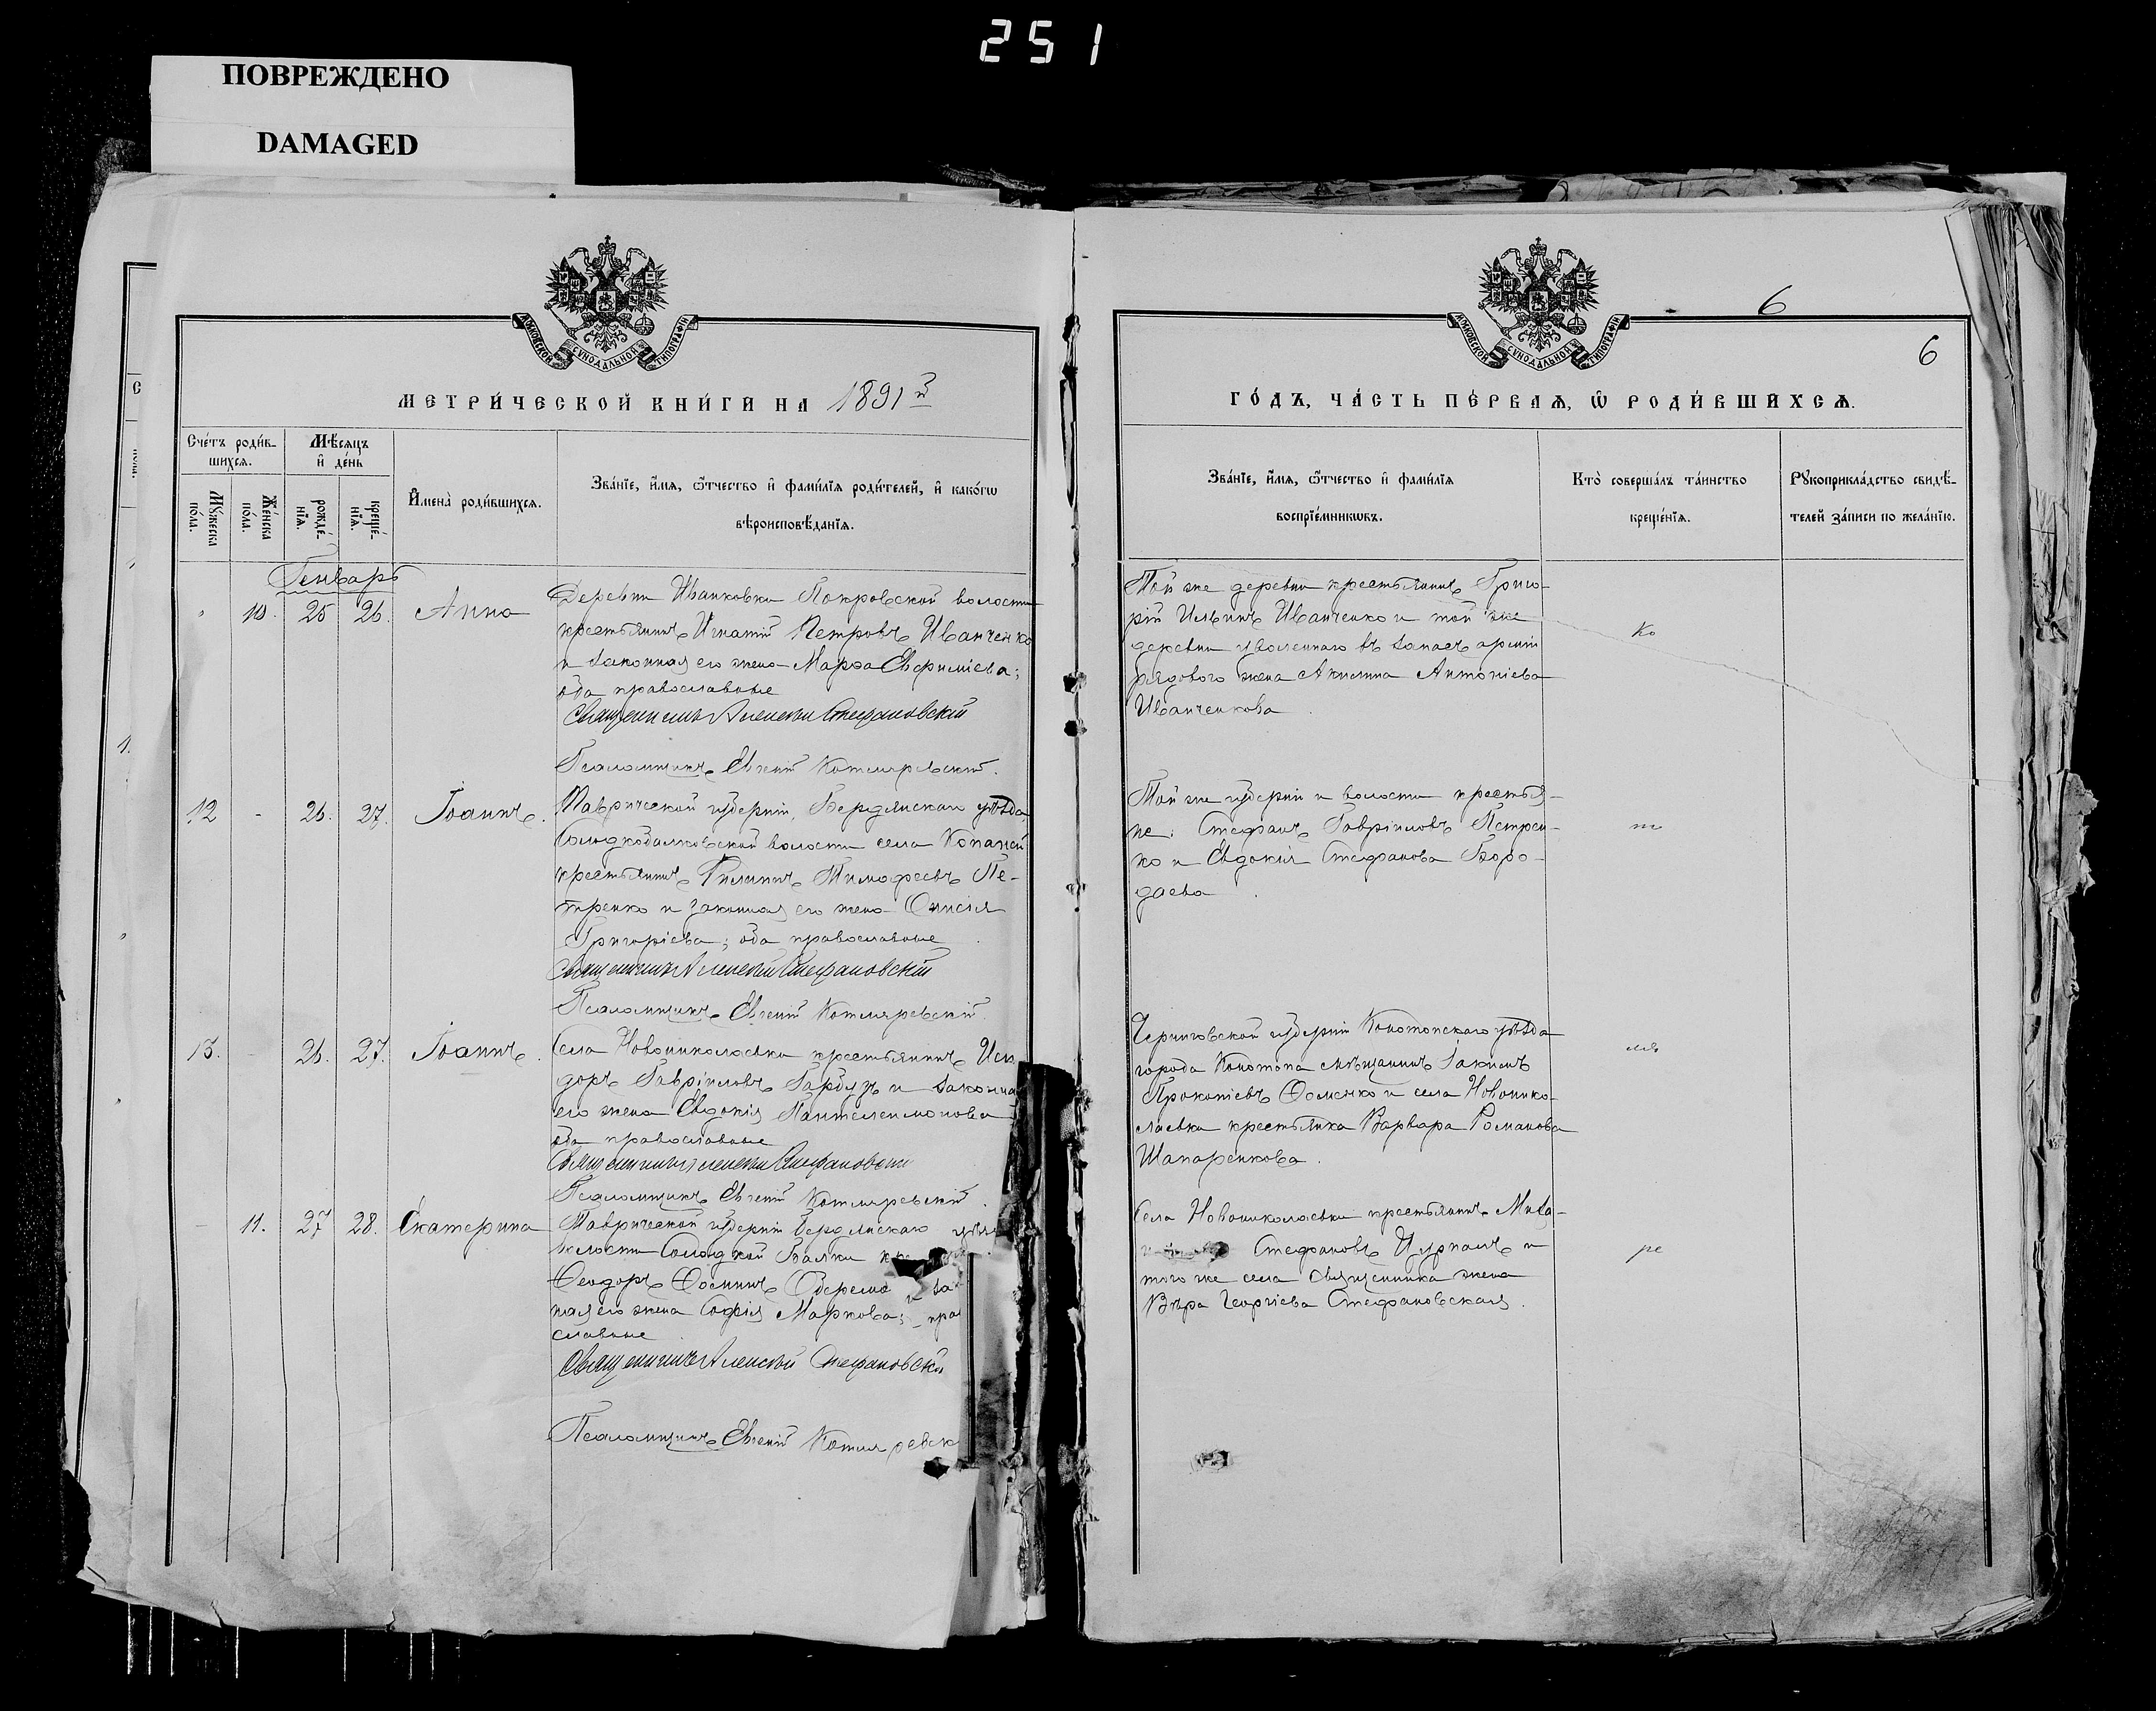 251
ПОВРЕЖДЕНО
DAMAGED
МОСКОВСКОЙ СѴНОДАЛЬНОЙ ТИПОГРАФІИ
МЕТРИ́ЧЕСКОЙ КНИ́ГИ НА 1891 й
Сче́тъ роди́в-
шихсѧ.
Мѣ́сѧцъ
и҆ де́нь
Мꙋ́жеска по́ла.
Же́нска по́ла.
рожде́-нїѧ.
креще́-нїѧ.
И҆мена̀ роди́вшихсѧ.
Зва́нїе, и҆́мѧ, ѻ҆́тчество и҆ фами́лїѧ роди́телей, и҆ како́гѡ
вѣроисповѣ́данїѧ.
Генварь
10. 25 26. Анна
Деревни Иванковки Покровской волости
крестьянинъ Игнатій Петровъ Иванченко
и законная его жена Марѳа Евфиміева;
оба православные
Священникъ Алексѣй Стефановскій
Псаломщикъ Евгеній Котляревскій.
12 - 26. 27. Іоаннъ.
Таврической губерніи, Бердянскаго уѣзда
Солодкобалковской волости села Копаней
крестьянинъ Филиппъ Тимоѳеевъ Пе-
тренко и законная его жена Онисія
Григоріева; оба православные
Священникъ Алексѣй Стефановскій
Псаломщикъ Евгеній Котляревскій.
13. 26. 27. Іоаннъ.
Села Новониколаевки крестьянинъ Иси
доръ Гавріиловъ Гарбузъ и законна
его жена Евдокія Пантелеимонова
оба православные
Священникъ Алексѣй Стефановскій
Псаломщикъ Евгеній Котляревскій.
- 11. 27 28. Екатерина
Таврической губерніи Бердянскаго уѣзд
волости Солодкой Балки
Ѳеодоръ Ѳоминъ и за
ная его жена Софія Маркова; пра
славные
Священникъ Алексѣй Стефановскій
Псаломщикъ Евгеній Котляревск
МОСКОВСКОЙ СѴНОДАЛЬНОЙ ТИПОГРАФІИ
6
6
ГО́ДЪ, ЧА́СТЬ ПЕ́РВАѦ, Ѡ҆ РОДИ́ВШИХСѦ.
Зва́нїе, и҆́мѧ, ѻ҆́тчество и҆ фами́лїѧ
воспрїе́мникѡвъ.
Кто̀ соверша́лъ та́инство
креще́нїѧ.
Рꙋкоприкла́дство свидѣ́-
телей за́писи по жела́нїю.
Той же деревни крестьянинъ Григо-
рій Ильинъ Иванченко и той же
деревни уволеннаго въ запасъ арміи
рядового жена Акилина Антоніева
Иванченкова
Ко
Той же губерніи и волости крестья-
не: Стефанъ Гавріиловъ Петрен-
ко и Евдокія Стефанова Боро-
даева
т
Черниговской губерніи Конотопскаго уѣзда
города Конотопа мѣщанинъ Іакимъ
Прокопіевъ Ѳоменко и села Новонико-
лаевки крестьянка Варвара Романова
Шапаренкова.
ля
Села Новониколаевки крестьянинъ Миха-
Стефановъ Цурканъ и
того же села священника жена
Вѣра Георгіева Стефановская.
ре